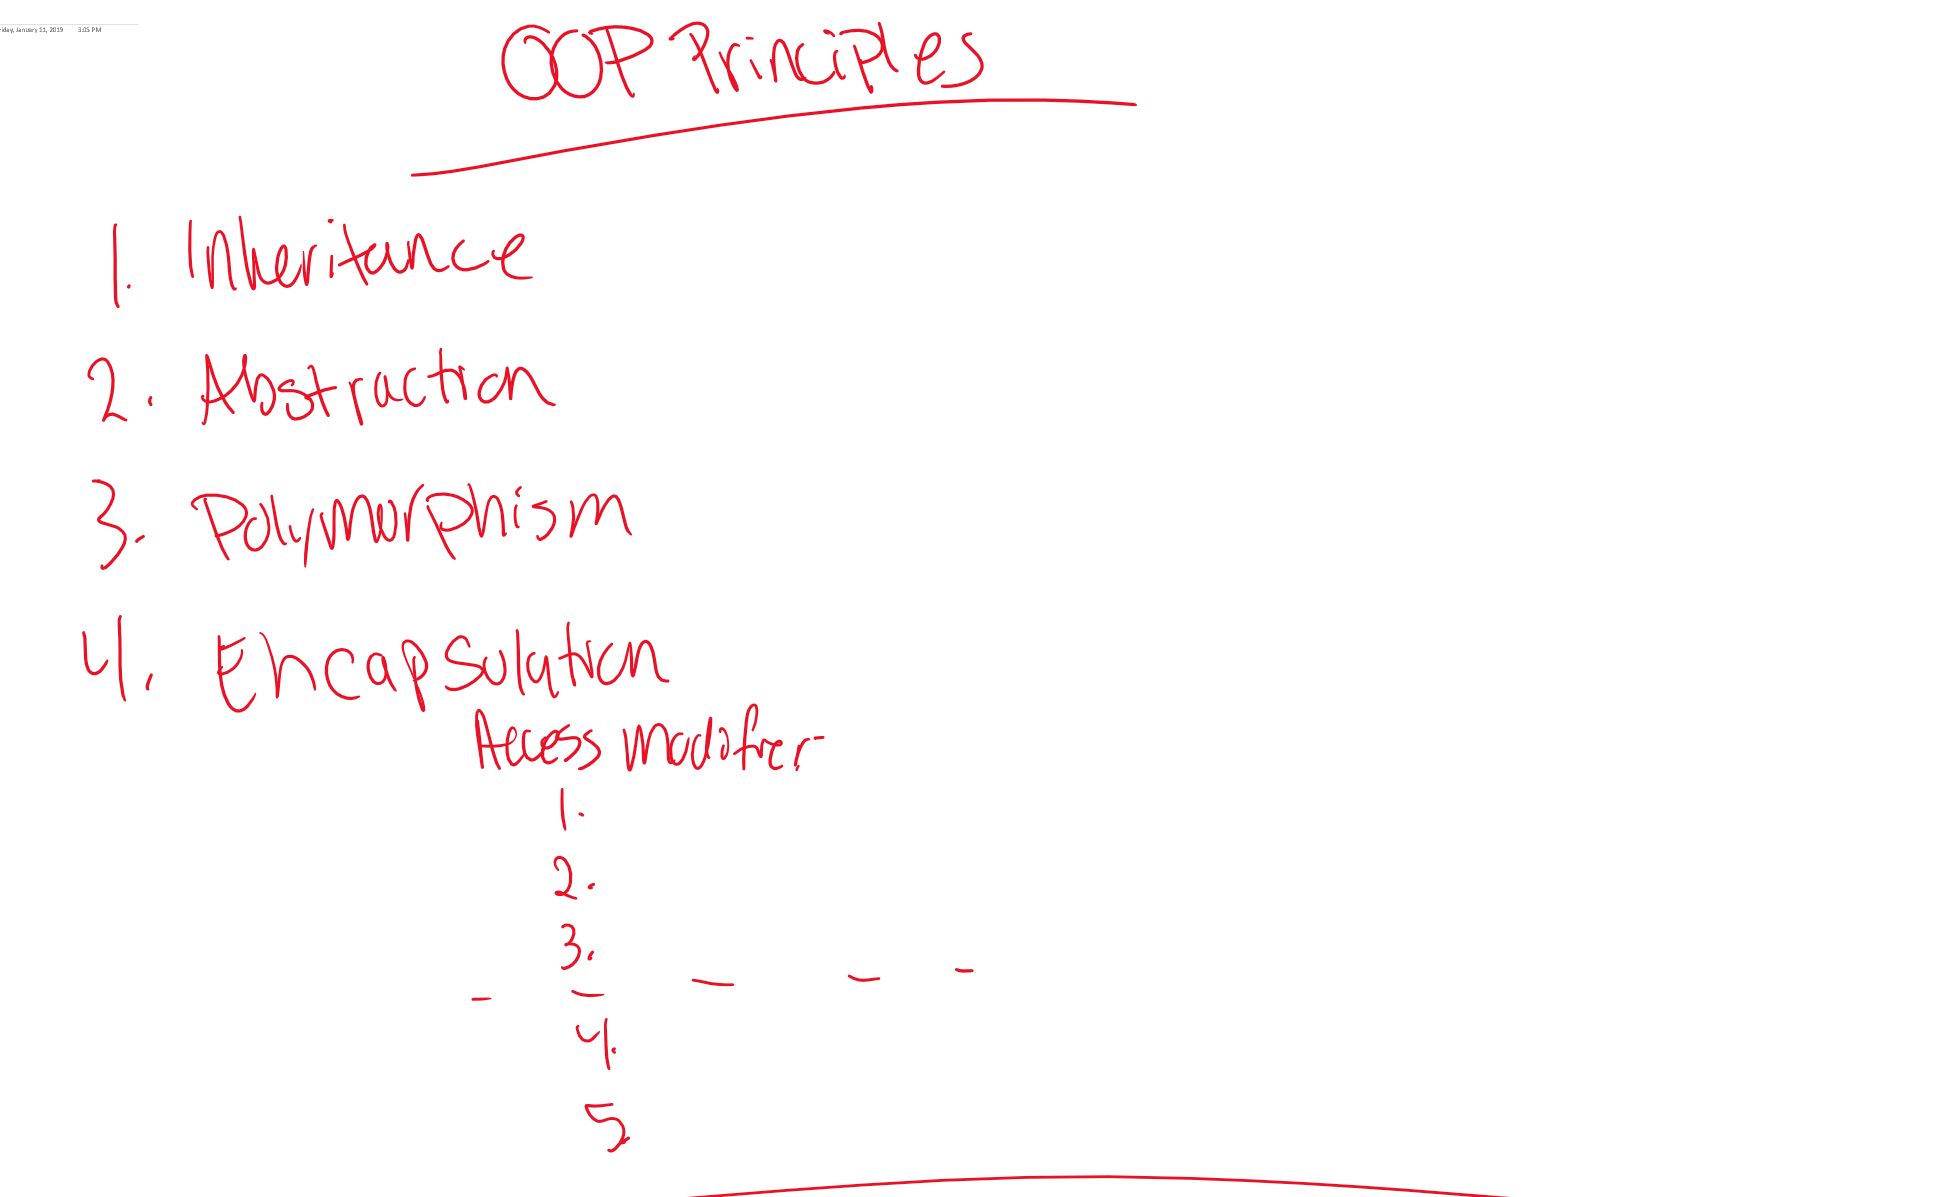 riday, January 11, 2019 3:05 PM
OOP Principles
1. Inheritance
2. Abstraction
3. Polymorphism
4. Encapsulation
Access modifier
1.
2.
3.
4.
5.